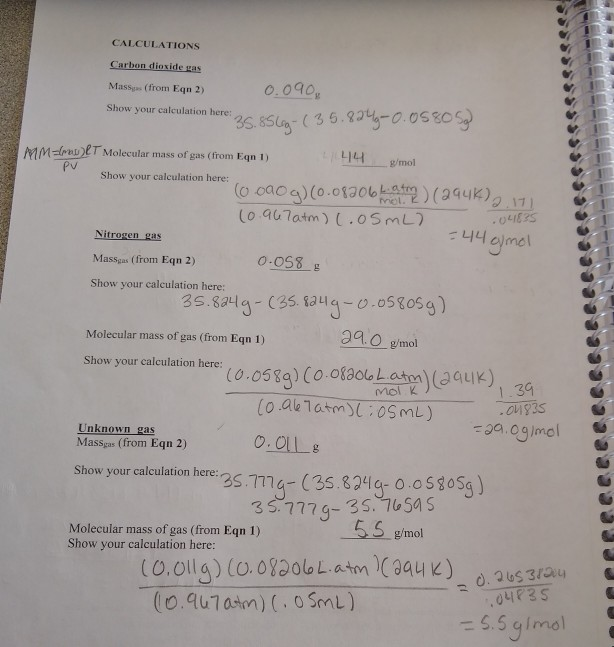 CALCULATIONS
Carbon dioxide gas
Massgas (from Eqn 2) 0.090g
Show your calculation here: 35.856g-(35.824g-0.05805g)
MM=(mass)RT/PV Molecular mass of gas (from Eqn 1) 44 g/mol
Show your calculation here:
(0.090g)(0.08206 L.atm/mol.K)(294K) 2.171
(0.967atm)(.05mL) .04835
=44g/mol
Nitrogen gas
Massgas (from Eqn 2) 0.058 g
Show your calculation here:
35.824g-(35.824g-0.05805g)
Molecular mass of gas (from Eqn 1) 29.0 g/mol
Show your calculation here:
(0.058g)(0.08206 L.atm/mol.K)(294K) 1.39
(0.967atm)(.05mL) .04835
=29.0g/mol
Unknown gas
Massgas (from Eqn 2) 0.011 g
Show your calculation here: 35.777g-(35.824g-0.05805g)
35.777g-35.76595
Molecular mass of gas (from Eqn 1) 5.5 g/mol
Show your calculation here:
(0.011g)(0.08206L.atm)(294K) = 0.26531204
(0.967atm)(.05mL) .04835
=5.5g/mol